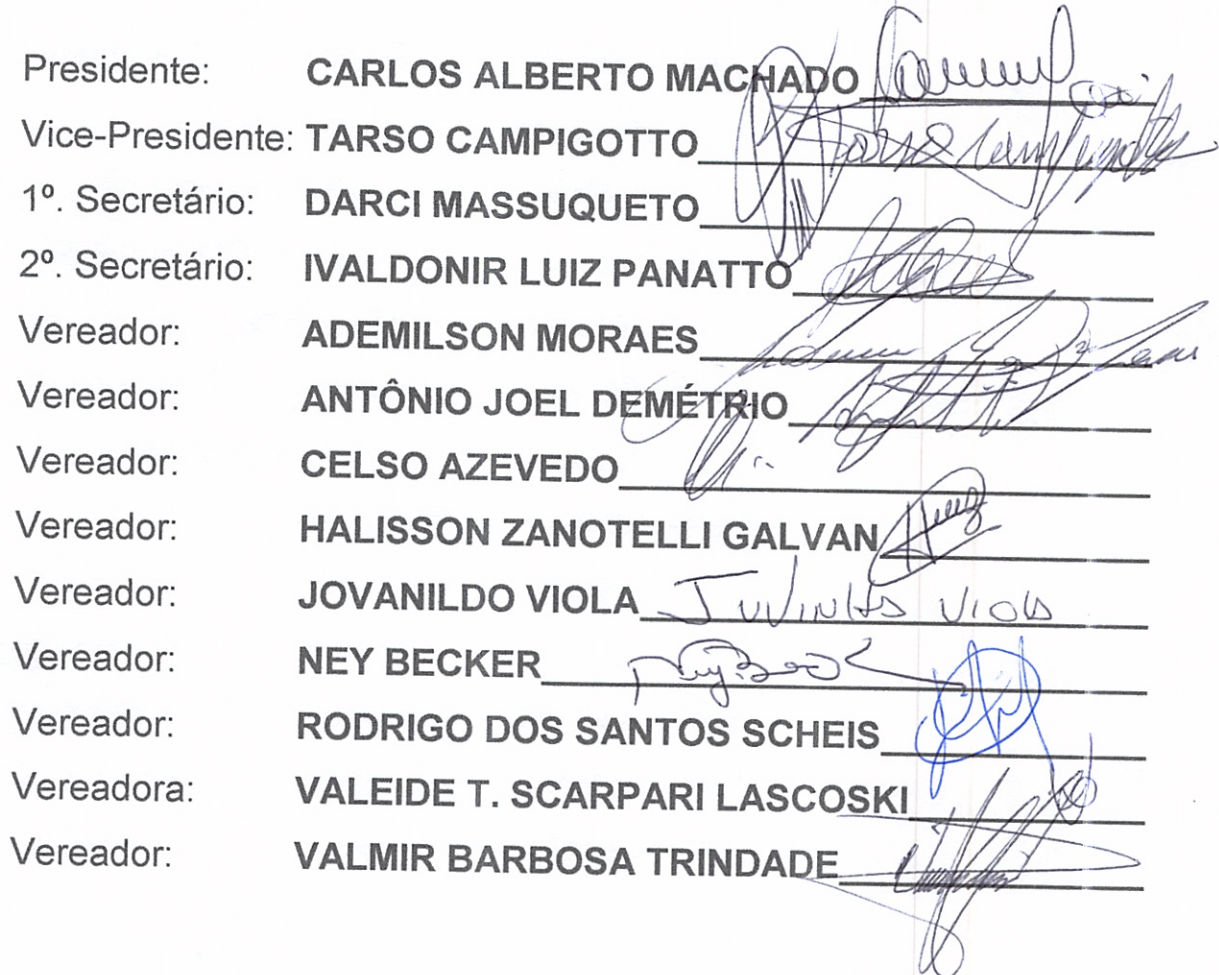 Presidente: CARLOS ALBERTO MACHADO
Vice-Presidente: TARSO CAMPIGOTTO Tarso Campigotto
1º. Secretário: DARCI MASSUQUETO
2º. Secretário: IVALDONIR LUIZ PANATTO
Vereador: ADEMILSON MORAES
Vereador: ANTÔNIO JOEL DEMÉTRIO
Vereador: CELSO AZEVEDO
Vereador: HALISSON ZANOTELLI GALVAN
Vereador: JOVANILDO VIOLA
Vereador: NEY BECKER
Vereador: RODRIGO DOS SANTOS SCHEIS
Vereadora: VALEIDE T. SCARPARI LASCOSKI
Vereador: VALMIR BARBOSA TRINDADE